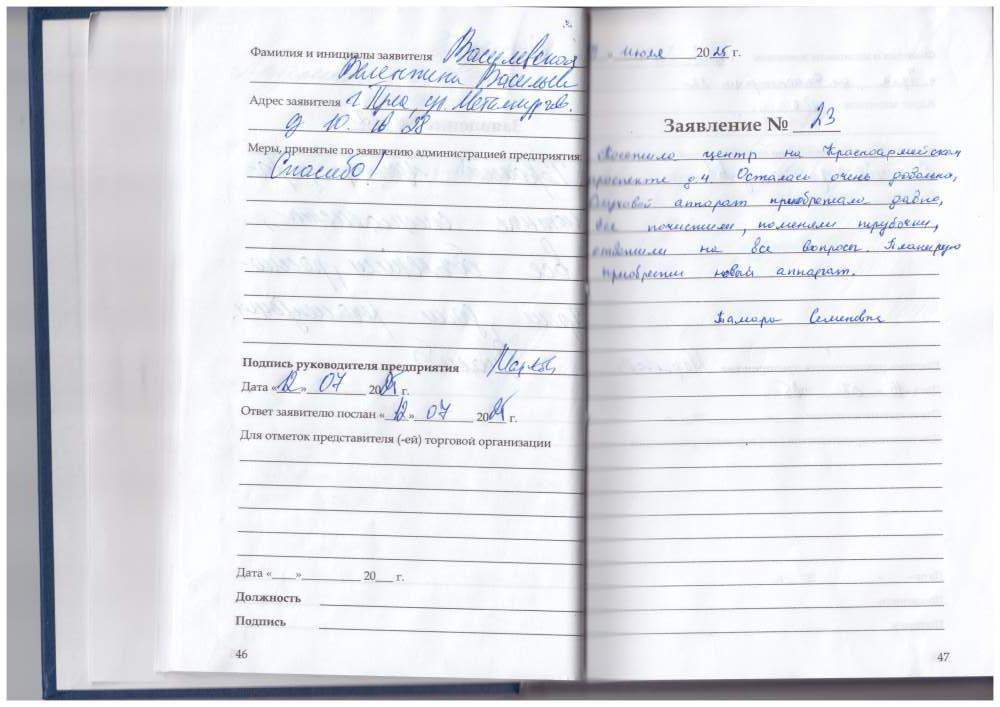 Фамилия и инициалы заявителя Василевская
Валентина Васильев
Адрес заявителя г. Тула, ул. Металлургов.
д 10. кв 28
Меры, принятые по заявлению администрацией предприятия
Спасибо!
Подпись руководителя предприятия
Дата «12» 07 2025 г.
Ответ заявителю послан «12» 07 2025 г.
Для отметок представителя (-ей) торговой организации
Дата «____»__________ 20___ г.
Должность
Подпись
46
» июля 2025 г.
Заявление № 23
Посетила центр на Красноармейском
проспекте д.4. Осталась очень довольна,
Слуховой аппарат приобретали давно,
все почистили, поменяли трубочки,
ответили на все вопросы. Планирую
приобрести новый аппарат.
Тамара Семеновна
47